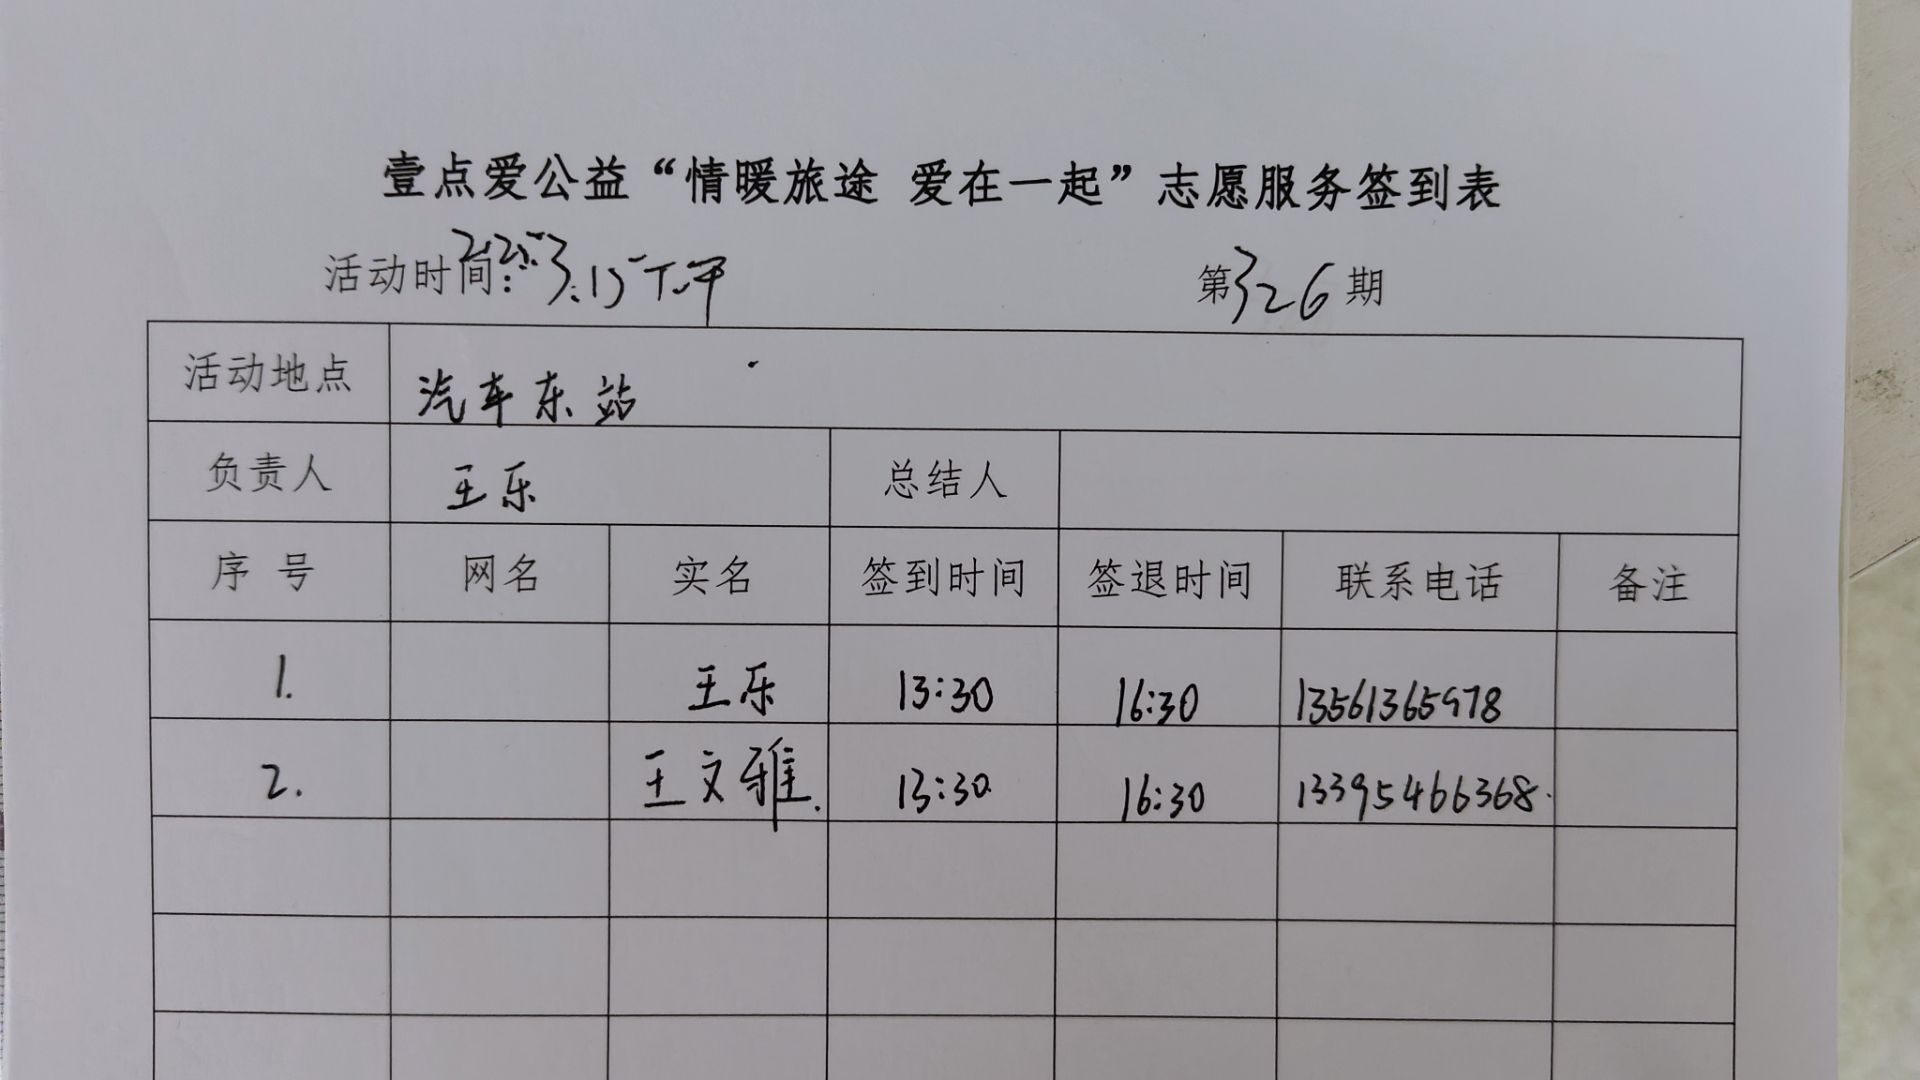 壹点爱公益“情暖旅途 爱在一起”志愿服务签到表
活动时间：2025.3.15下午 第326期
活动地点 汽车东站
负责人 王乐 总结人
序号 网名 实名 签到时间 签退时间 联系电话 备注
1. 王乐 13:30 16:30 13561365978
2. 王文雅. 13:30 16:30 13395466368.